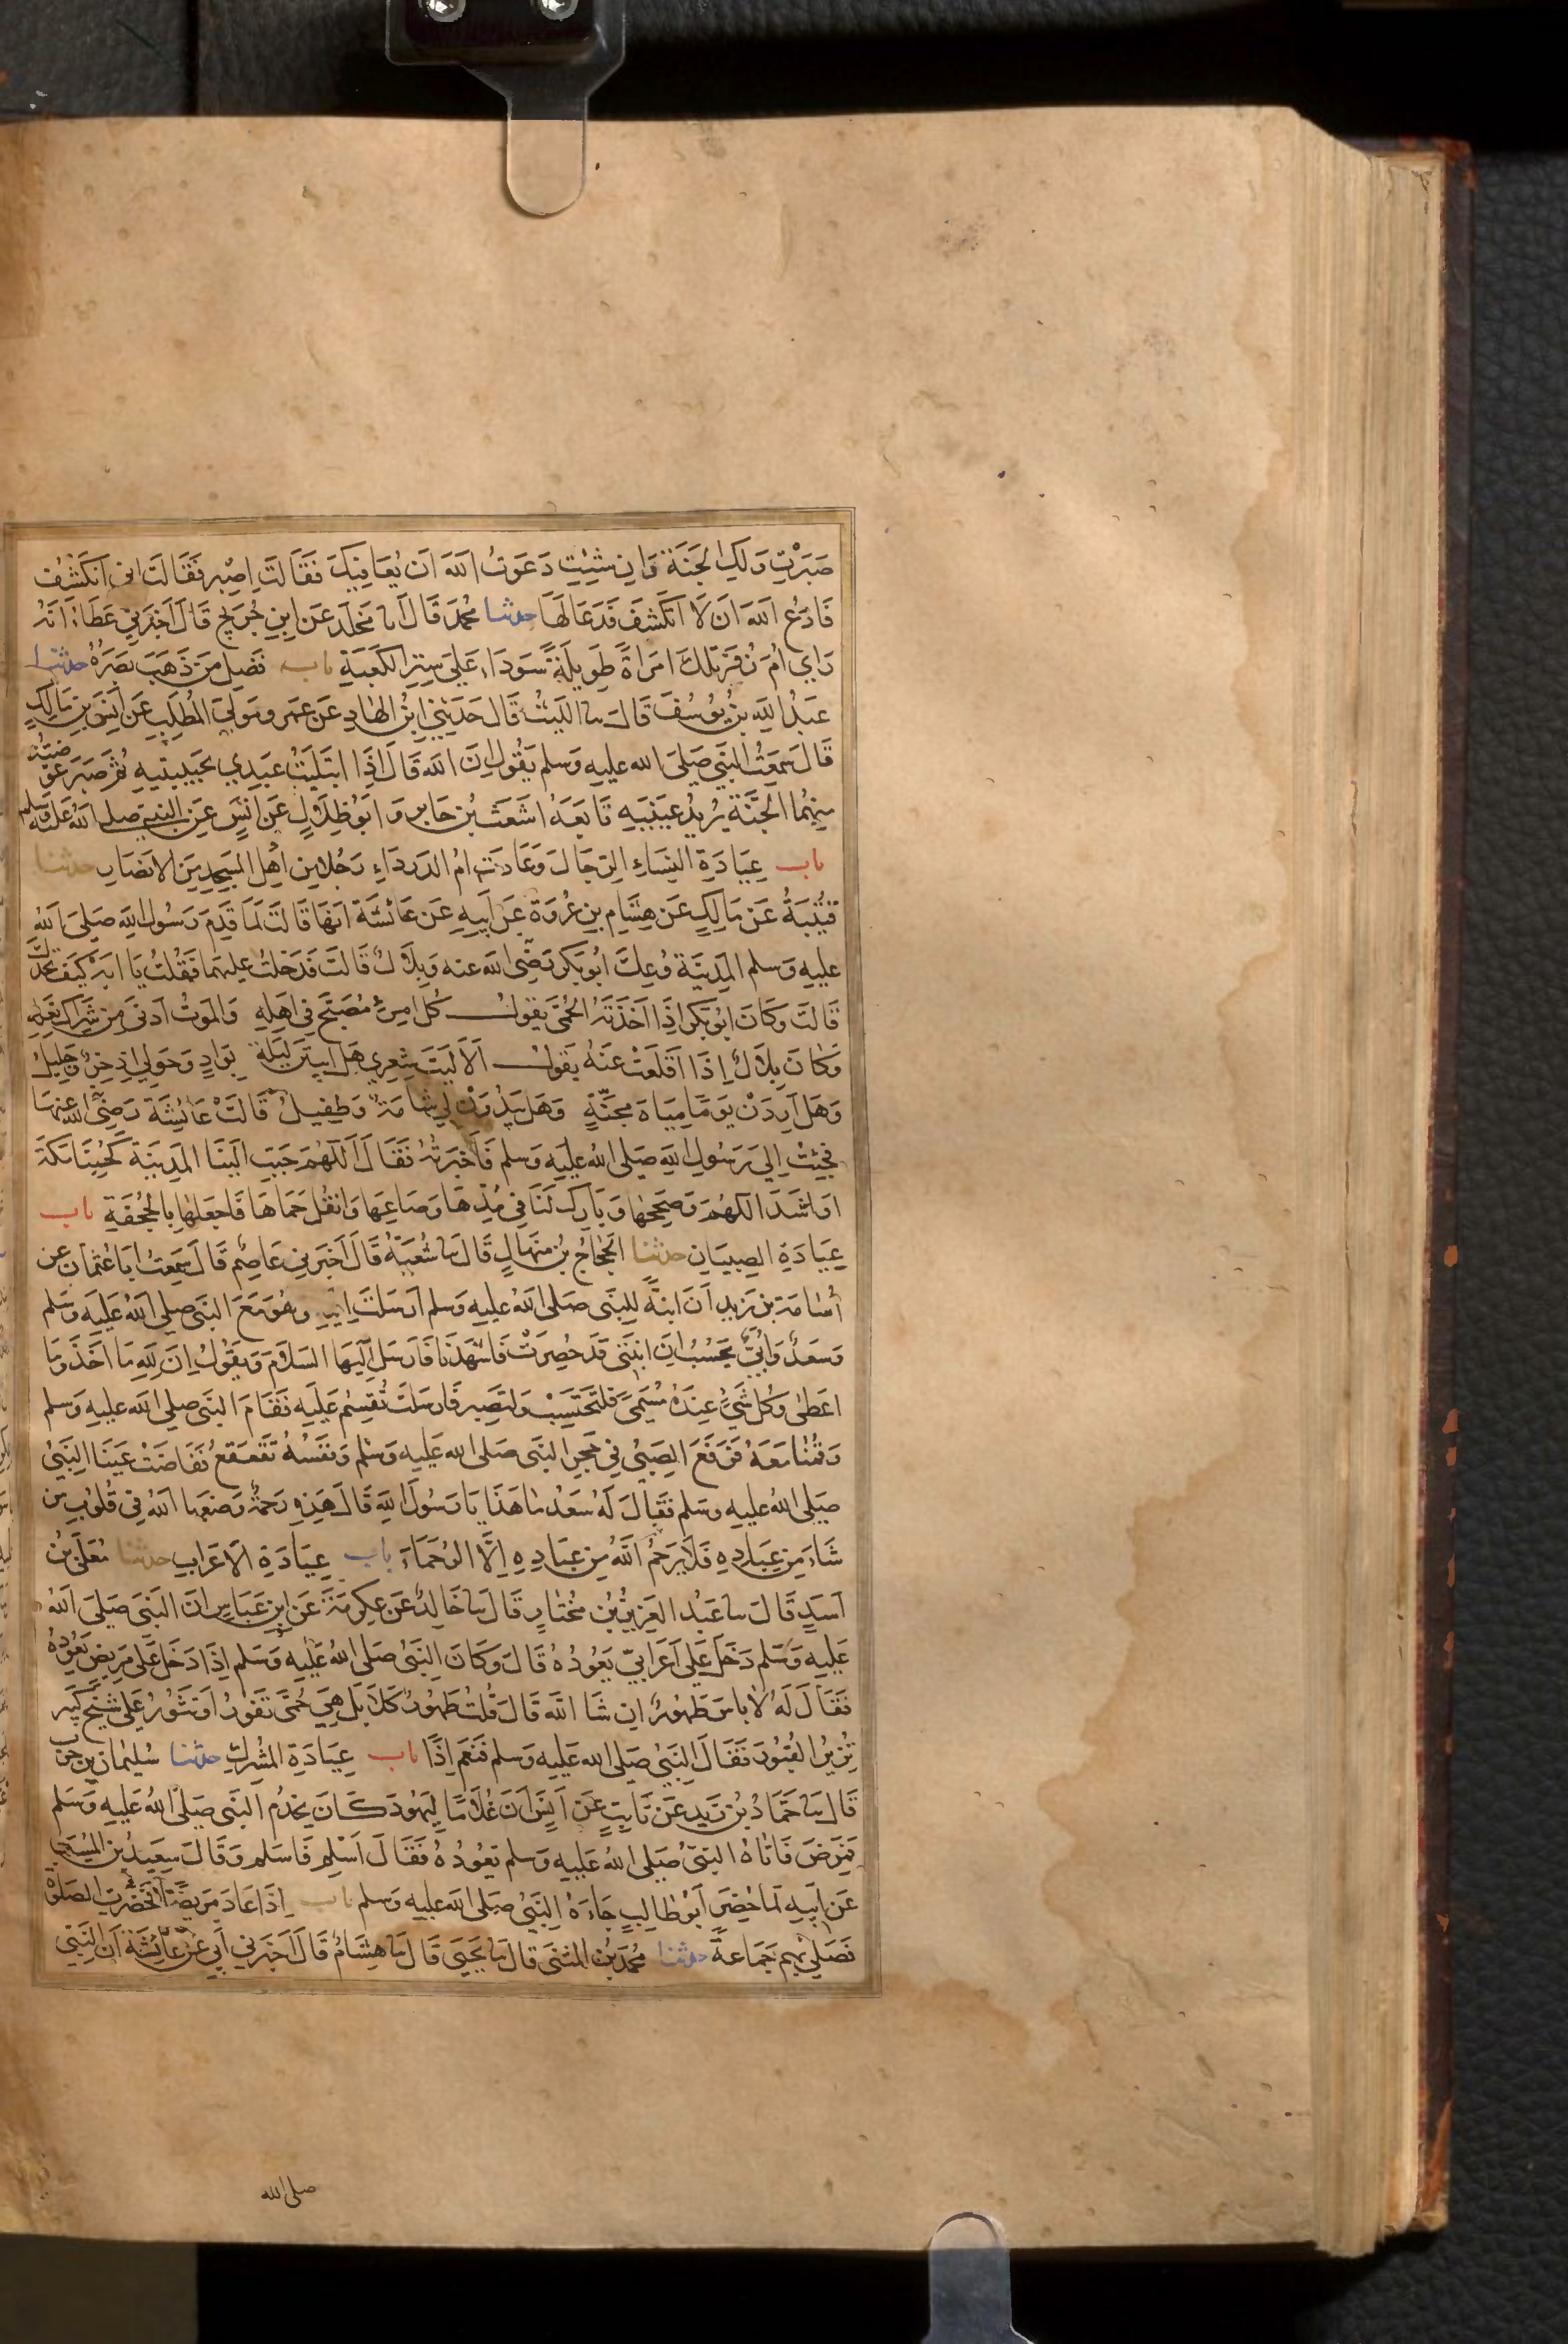 صَبَرْتِ وَلَكِ الجَنَّةُ وَاِن شِئْتِ دَعَوْتُ اللهَ اَن يُعَافِيَكِ فَقَالَت اَصْبِر فَقَالَت اني اَتكَشَّفُ
فَادْعُ اللهَ اَن لَا اَتكَشَّفَ فَدَعَا لَهَا حدثنا مُحمد قَالَ انا مَخْلَد عَن ابنِ جُرَيجٍ قَالَ اَخبَرَنِي عَطَاءٌ اَنَّهُ
رَاي اُمَّ زُفَرَ تِلكَ امرَاةً طَوِيلَةً سَودَاءَ عَلى سِترِ الكَعبَةِ باب فَضلِ مَن ذَهَبَ بَصَرُهُ حدثنا
عَبدُ اللهِ بنُ يُوسُفَ قَالَ سا اللَّيثُ قَالَ حَدَّثَنِي ابنُ الهَادِ عَن عَمرٍو مَولَي المُطَّلِبِ عَن اَنَسِ بنِ مَالِكٍ
قَالَ سَمِعتُ النبي صَلى الله عليه وَسلم يَقُولُ اِنَّ اللهَ قَالَ اِذَا ابتَلَيتُ عَبدِي بحَبِيبَتَيهِ ثُمَّ صَبَرَ عَوَّضتُهُ
مِنهُما الجَنَّةَ يُرِيدُ عَينَيهِ تَابَعَهُ اَشعَثُ بن جَابر وَ اَبُو ظِلَالٍ عَن اَنَسٍ عَنِ النبي صلى الله عليه وسلم
باب عِيَادَةِ النِّسَاءِ الرِّجَالَ وَعَادَت اُمُّ الدَّردَاءِ رَجُلًا مِن اَهلِ المَسجِدِ مِنَ الانصَارِ حدثنا
قُتَيبَةُ عَن مَالِكٍ عَن هِشَامِ بنِ عُروَةَ عَن اَبِيهِ عَن عَائشَةَ اَنَّهَا قَالَت لَمَّا قَدِمَ رَسُولُ اللهِ صَلى اللهُ
عليهِ وَسلم المَدِينَةَ وُعِكَ اَبُو بَكر رَضي الله عنه وَبِلَالٌ قَالَت فَدَخَلتُ عليهمَا فَقُلتُ يَا اَبَه كَيفَ تَجِدُكَ
قَالَت وَكَانَ اَبُو بَكر اِذَا اَخَذَتهُ الحُمَّى يَقولُ كُل امرِئٍ مُصَبَّح فِي اَهلِهِ وَالمَوتُ اَدنَى مِن شِرَاكِ نَعلِهِ
وَكَانَ بِلَالٌ اِذَا اَقلَعَت عَنهُ يَقولُ اَلَا لَيتَ شِعرِي هَل اَبِيتَنَّ لَيلَةً بِوَادٍ وَحَولِي اِذخِرٌ وَجَلِيلُ
وَهَل اَرِدَن يَومًا مِيَاهَ مجَنَّةٍ وَهَل يَبدُوَن لِي شَامَةٌ وَطَفِيلُ قَالَت عَائِشَةَ رَضيَ الله عنها
فَجِئتُ اِلي رَسُولِ اللهِ صَلى اللهُ عليهِ وَسلم فَاَخبَرتُهُ فَقَالَ اَللَّهُمَّ حَبِّب اِلَينَا المَدِينَةَ كَحُبِّنَا مَكَّةَ
اَو اَشَدَّ اللَّهُمَّ وَصَحِّحهَا وَبَارِك لَنَا فِي مُدِّهَا وَصَاعِهَا وَانقُل حُمَّاهَا فَاجعَلهَا بِالجُحفَةِ باب
عِيَادَةِ الصِّبيَانِ حدثنا الحَجَّاجُ بنُ مِنهَالٍ قَالَ سا شُعبَةُ قَالَ اَخبَرَنِي عَاصِمٌ قَالَ سَمِعتُ اَبَا عُثمَان عن
اُسَامَة بن زَيد اَنَّ ابنَةً لِلنبي صَلى اللهُ عليهِ وَسلم اَرسَلَت اِلَيهِ وَهُوَ مَعَ النبي صلى اللهُ عَليهِ وَسَلم
وَسَعدٌ وَاُبَيٌّ نَحسُبُ اَنَّ ابنَتِي قَد حُضِرَت فَاشهَدنَا فَاَرسَلَ اِلَيهَا السَّلَامَ وَيَقُولُ اِنَّ لِلهِ مَا اَخَذَ وَمَا
اَعطى وَكُل شَيءٍ عِندَهُ مُسَمّيً فَلتَحتَسِب وَلتَصبِر فَاَرسَلَت تُقسِمُ عَلَيهِ فَقَامَ النبي صلى الله عليهِ وَسلم
وَقُمنَا مَعَهُ فَرَفَعَ الصَّبِيُّ فِي حَجرِ النبي صَلى الله عَليهِ وَسلم وَنَفسُهُ تَقَعقَعُ فَفَاضَت عَينَا النَّبي
صَلى اللهُ عليهِ وسَلم فقَالَ لَهُ سَعدٌ ما هَذَا يَا رَسُولَ اللهِ قَالَ هَذِهِ رَحمَةٌ وَضَعَها اللهُ فِي قُلُوبِ مَن
شَاءَ مِن عِبَادِهِ فَلَا يَرحَمُ اللهُ مِن عِبَادِهِ اِلَّا الرُّحَمَاءَ باب عِيَادَةِ الاَعرَابِ حدثنا مُعَلَّى بنُ
اَسَدٍ قَالَ سا عَبدُ العَزِيزِ بنُ مُختَارٍ قَالَ سا خَالِدٌ عَن عِكرِمَةَ عَن ابنِ عَبَاسٍ اَنَّ النَبي صَلى اللهُ
عَليهِ وَسَلم دَخَلَ عَلى اَعرَابِيّ يَعُودُهُ قَالَ وَكَانَ النبي صَلى اللهُ عَليهِ وَسَلم اِذَا دَخَلَ عَلى مَرِيضٍ يَعُودُهُ
فَقَالَ لَهُ لا باسَ طَهُورٌ اِن شَا اللهُ قَالَ قُلتَ طَهُورٌ كَلَّا بَل هِيَ حُمَّى تَفُورُ اَو تَثُورُ عَلى شَيخٍ كَبِير
تُزِيرُ القُبُورَ فَقَالَ النبي صَلى الله عَليهِ وَسلم فَنَعَم اِذًا باب عِيَادَةِ المُشرِكِ حدثنا سُليمَان بن حرب
قَالَ سا حَمَادُ بنُ زَيدٍ عَن ثَابِتٍ عَن اَنَسٍ اَنَّ غُلَامًا لِيَهُودَ كَانَ يَخدُمُ النبي صَلى اللهُ عَليهِ وَسَلم
فَمَرِضَ فَاَتَاهُ النبي صَلى اللهُ عَليهِ وسلم يَعُودُهُ فَقَالَ اَسلِم فَاَسلَم وَقَالَ سَعِيدُ بنُ المُسَيب
عَن اَبِيهِ لَمَّا حُضِرَ اَبُو طَالِبٍ جَاءَهُ النبي صَلى الله عليه وسلم باب اِذَا عَادَ مَرِيضًا فَحَضَرَتِ الصَلوةُ
فَصَلى بِهِم جَمَاعَةً حدثنا مُحمَد بنُ المُثَنى قَالَ سا يَحيَى قَالَ سا هِشَامٌ قَالَ اَخبَرَنِي اَبِي عَن عَائِشَةَ اَنَّ النَّبي
صلى الله